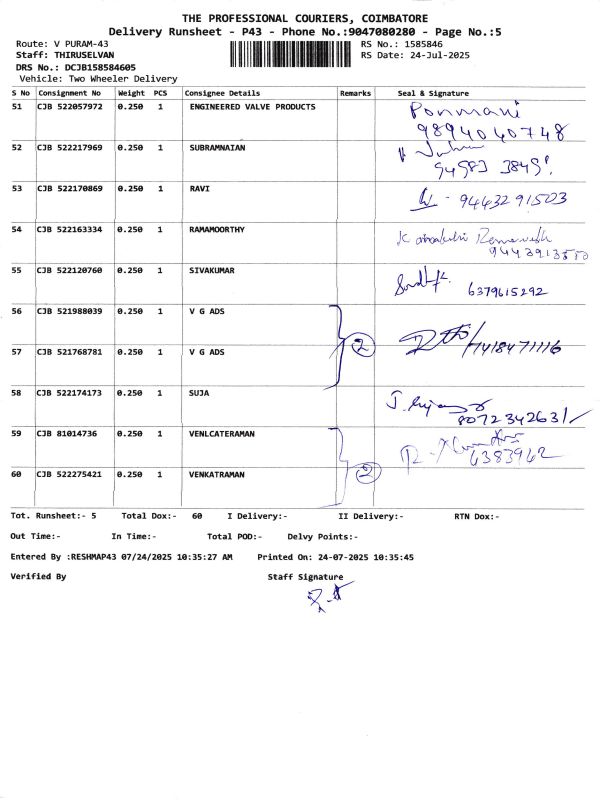 THE PROFESSIONAL COURIERS, COIMBATORE
Delivery Runsheet - P43 - Phone No.:9047080280 - Page No.:5
Route: V PURAM-43 RS No.: 1585846
Staff: THIRUSELVAN RS Date: 24-Jul-2025
DRS No.: DCJB158584605
Vehicle: Two Wheeler Delivery
S No Consignment No Weight PCS Consignee Details Remarks Seal & Signature
51 CJB 522057972 0.250 1 ENGINEERED VALVE PRODUCTS Ponmani
9894040748
52 CJB 522217969 0.250 1 SUBRAMNAIAN
53 CJB 522170869 0.250 1 RAVI 9443291503
54 CJB 522163334 0.250 1 RAMAMOORTHY
55 CJB 522120760 0.250 1 SIVAKUMAR
6379615292
56 CJB 521988039 0.250 1 V G ADS
2
57 CJB 521768781 0.250 1 V G ADS 7418471116
58 CJB 522174173 0.250 1 SUJA
8072342631
59 CJB 81014736 0.250 1 VENLCATERAMAN
6383962
60 CJB 522275421 0.250 1 VENKATRAMAN 2
Tot. Runsheet:- 5 Total Dox:- 60 I Delivery:- II Delivery:- RTN Dox:-
Out Time:- In Time:- Total POD:- Delvy Points:-
Entered By :RESHMAP43 07/24/2025 10:35:27 AM Printed On: 24-07-2025 10:35:45
Verified By Staff Signature